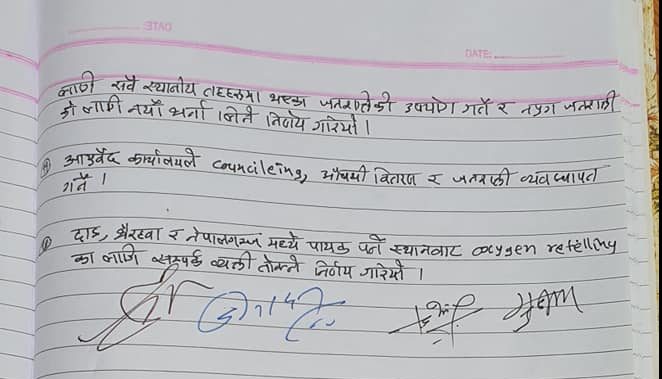 DATE
DATE:
लागी सबै स्थानीय तहहरुमा भएका जनशक्तिको उपयोग गर्ने र नपुग जनशक्ती
को लागी नयाँ भर्ना लिने निर्णय गरियो।
आयुर्वेद कार्यालयले councileing, औषधी वितरण र जनशक्ती व्यवस्थापन
गर्ने।
दाङ, भैरहवा र नेपालगन्ज मध्ये पायक पर्ने स्थानबाट oxygen refelling
का लागि सम्पर्क व्यक्ती तोक्ने निर्णय गरियो।